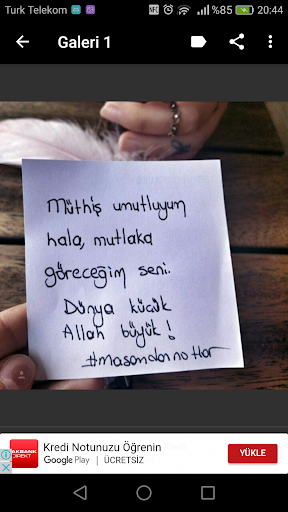 Turk Telekom %85 20:44
Galeri 1
Müthiş umutluyum
hala, mutlaka
göreceğim seni.
Dünya küçük
Allah büyük!
#masamdannotlar
AKBANK
DİREKT
Kredi Notunuzu Öğrenin
Google Play | ÜCRETSİZ
YÜKLE